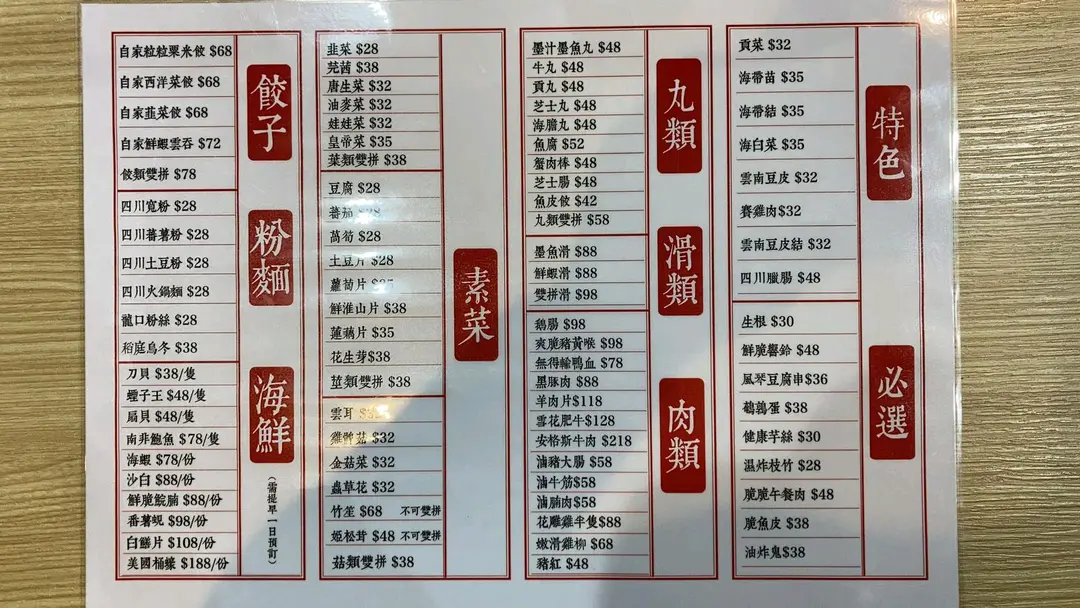 餃子
自家粒粒粟米餃 $68
自家西洋菜餃 $68
自家韮菜餃 $68
自家鮮蝦雲吞 $72
餃類雙拼 $78
粉麵
四川寬粉 $28
四川蕃薯粉 $28
四川土豆粉 $28
四川火鍋麵 $28
龍口粉絲 $28
稻庭烏冬 $38
海鮮
(需提早一日預訂)
刀貝 $38/隻
蟶子王 $48/隻
扇貝 $48/隻
南非鮑魚 $78/隻
海蝦 $78/份
沙白 $88/份
鮮脆鯇腩 $88/份
番薯蜆 $98/份
白鱔片 $108/份
美國桶蠔 $188/份
素菜
韭菜 $28
芫茜 $38
唐生菜 $32
油麥菜 $32
娃娃菜 $32
皇帝菜 $35
葉類雙拼 $38
豆腐 $28
蕃茄 $28
萵筍 $28
土豆片 $28
蘿蔔片
鮮淮山片 $38
蓮藕片 $35
花生芽$38
莖類雙拼 $38
雲耳
雞髀菇 $32
金菇菜 $32
蟲草花 $32
竹笙 $68 不可雙拼
姬松茸 $48 不可雙拼
菇類雙拼 $38
丸類
墨汁墨魚丸 $48
牛丸 $48
貢丸 $48
芝士丸 $48
海膽丸 $48
魚腐 $52
蟹肉棒 $48
芝士腸 $48
魚皮餃 $42
丸類雙拼 $58
滑類
墨魚滑 $88
鮮蝦滑 $88
雙拼滑 $98
肉類
鵝腸 $98
爽脆豬黃喉 $98
無得輸鴨血 $78
黑豚肉 $88
羊肉片$118
雪花肥牛$128
安格斯牛肉 $218
滷豬大腸 $58
滷牛筋$58
滷腩肉$58
花雕雞半隻$88
嫩滑雞柳 $68
豬紅 $48
特色
貢菜 $32
海帶苗 $35
海帶結 $35
海白菜 $35
雲南豆皮 $32
賽雞肉$32
雲南豆皮結 $32
四川臘腸 $48
必選
生根 $30
鮮脆響鈴 $48
風琴豆腐串$36
鵪鶉蛋 $38
健康芋絲 $30
濕炸枝竹 $28
脆脆午餐肉 $48
脆魚皮 $38
油炸鬼$38